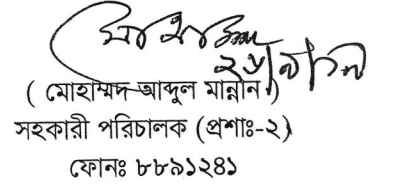 ( মোহাম্মদ আব্দুল মান্নান )
সহকারী পরিচালক (প্রশাঃ-২)
ফোনঃ ৮৮৯১২৪১